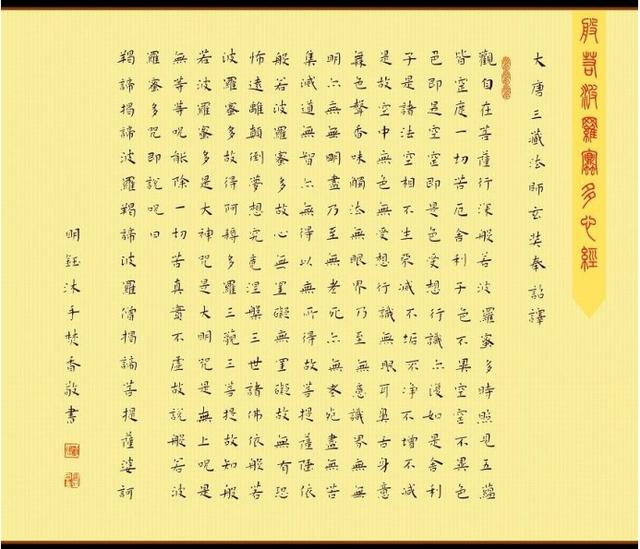 般若波羅蜜多心經
大唐三藏法師玄奘奉詔譯
觀自在菩薩行深般若波羅蜜多時照見五蘊
皆空度一切苦厄舍利子色不異空空不異色
色即是空空即是色受想行識亦復如是舍利
子是諸法空相不生不滅不垢不淨不增不減
是故空中無色無受想行識無眼耳鼻舌身意
無色聲香味觸法無眼界乃至無意識界無無
明亦無無明盡乃至無老死亦無老死盡無苦
集滅道無智亦無得以無所得故菩提薩埵依
般若波羅蜜多故心無罣礙無罣礙故無有恐
怖遠離顛倒夢想究竟涅槃三世諸佛依般若
波羅蜜多故得阿耨多羅三藐三菩提故知般
若波羅蜜多是大神呪是大明呪是無上呪是
無等等呪能除一切苦真實不虛故說般若波
羅蜜多呪即說呪曰
羯諦揭諦波羅羯諦波羅僧揭諦菩提薩婆訶
明鈺沐手焚香敬書